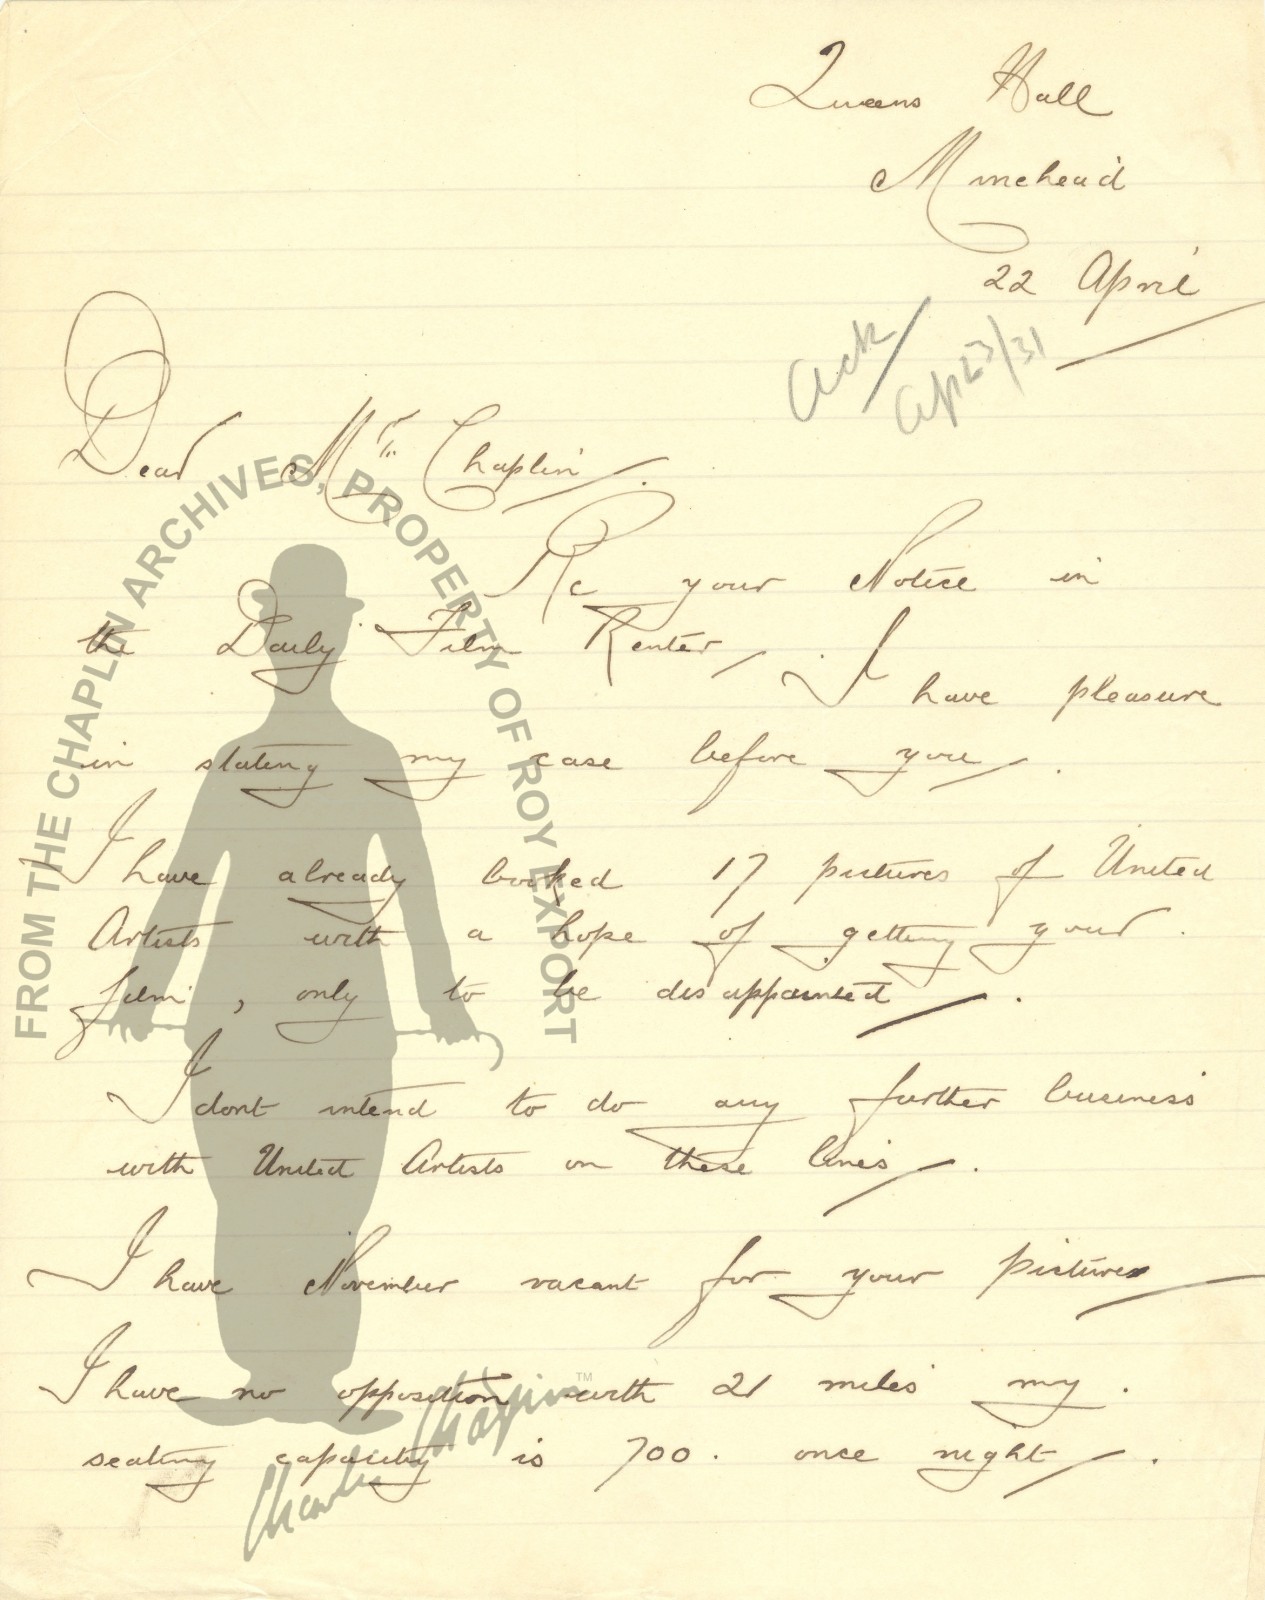 Queens Hall
Minehead
22 April
Ack/
Ap 23/31
Dear Mr Chaplin.
Re your Notice in
the Daily Film Renter, I have pleasure
in stating my case before you.
I have already booked 17 pictures of United
Artists with a hope of getting your
film, only to be disappointed.
I dont intend to do any further business
with United Artists on these lines.
I have November vacant for your pictures
I have no opposition with 21 miles my
seating capacity is 700. once night.
FROM THE CHAPLIN ARCHIVES, PROPERTY OF ROY EXPORT
Charlie Chaplin™